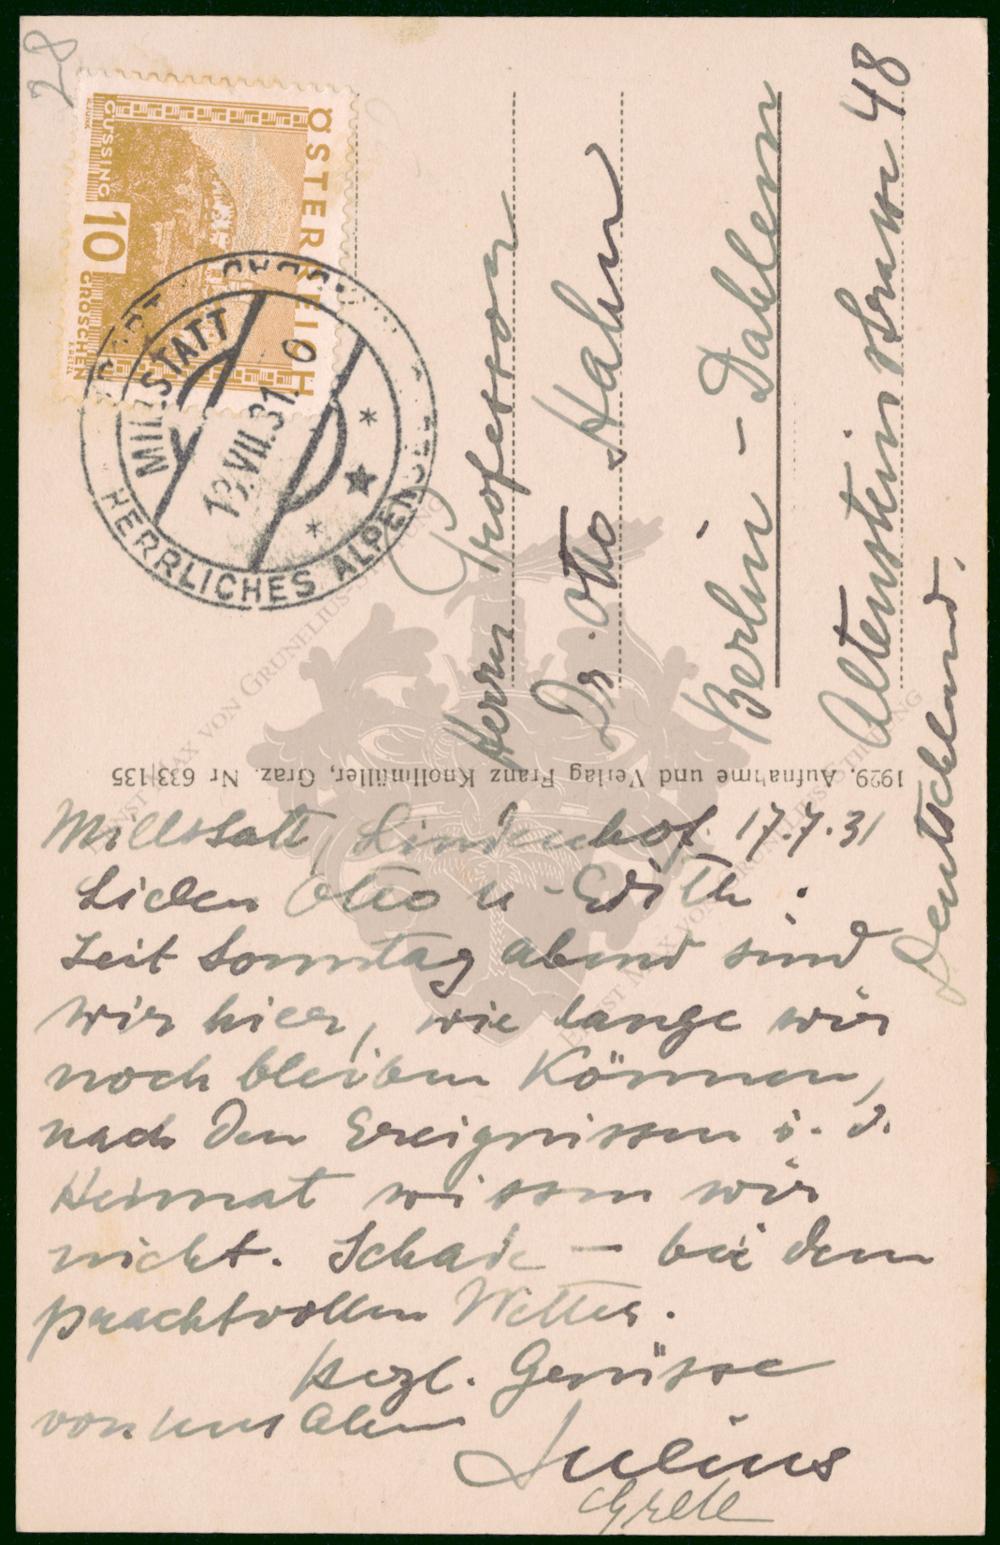 28
ÖSTERREICH
GÜSSING
10
GROSCHEN
MILLSTATT
HERRLICHES ALPENSEE
VII.31
Herrn Professor
Dr. Otto Hahn
Berlin - Dahlem
Altensteinstrasse 48
Deutschland.
1929, Aufnahme und Verlag Franz Knollmüller, Graz. Nr 633/135
Millstatt, Lindenhof. 17.7.31
Lieben Otto u. Edith!
Seit Sonntag abend sind
wir hier, wie lange wir
noch bleiben können,
nach den Ereignissen i. d.
Heimat wissen wir
nicht. Schade - bei dem
prachtvollen Wetter.
Herzl. Grüsse
von uns Allen
Julius
Grete
ERNST MAX VON GRUNELIUS-STIFTUNG
ERNST MAX VON GRUNELIUS-STIFTUNG